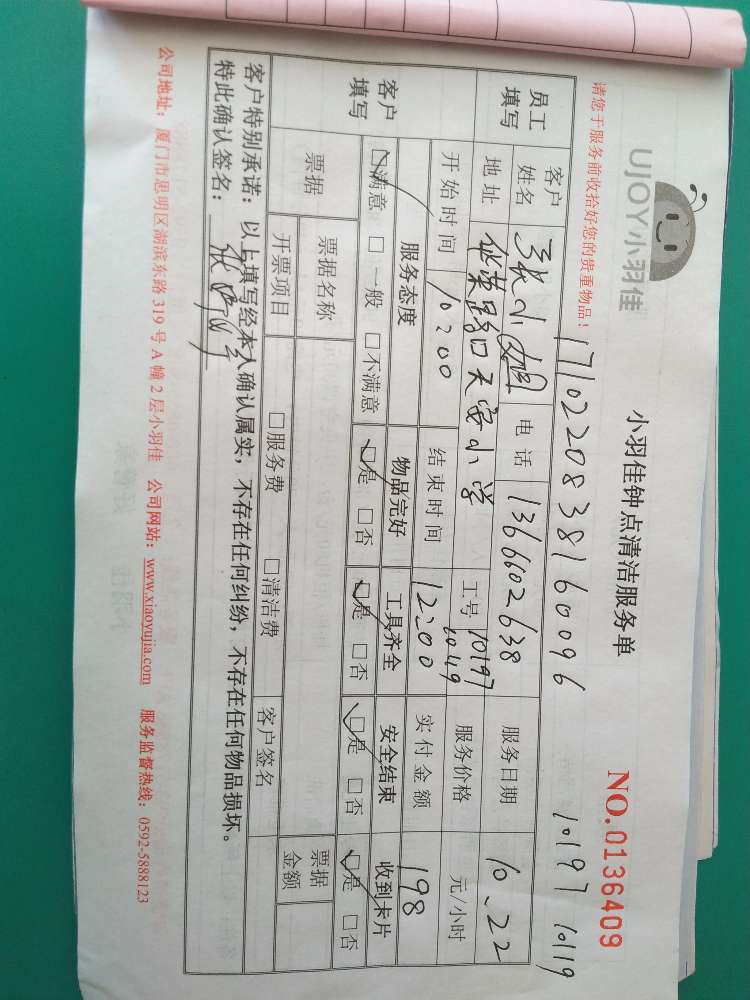 UJOY小羽佳
小羽佳钟点清洁服务单
NO.0136409
请您于服务前收拾好您的贵重物品！
1710220838160096 10197 10119
员工填写 客户姓名 张小 电话 服务日期 10.22
地址 路口天安小学 工号 10197 服务价格 元/小时
开始时间 10:00 结束时间 12:00 实付金额 198
客户填写 服务态度 物品完好 工具齐全 安全结束 收到卡片
☑满意 □一般 □不满意 ☑是 □否 ☑是 □否 ☑是 □否 ☑是 □否
票据 票据名称 □服务费 □清洁费 客户签名 票据金额
开票项目
客户特别承诺：以上填写经本人确认属实，不存在任何纠纷，不存在任何物品损坏。
特此确认签名：张
公司地址：厦门市思明区湖滨东路 319 号 A 幢 2 层小羽佳 公司网站：www.xiaoyujia.com 服务监督热线：0592-5888123